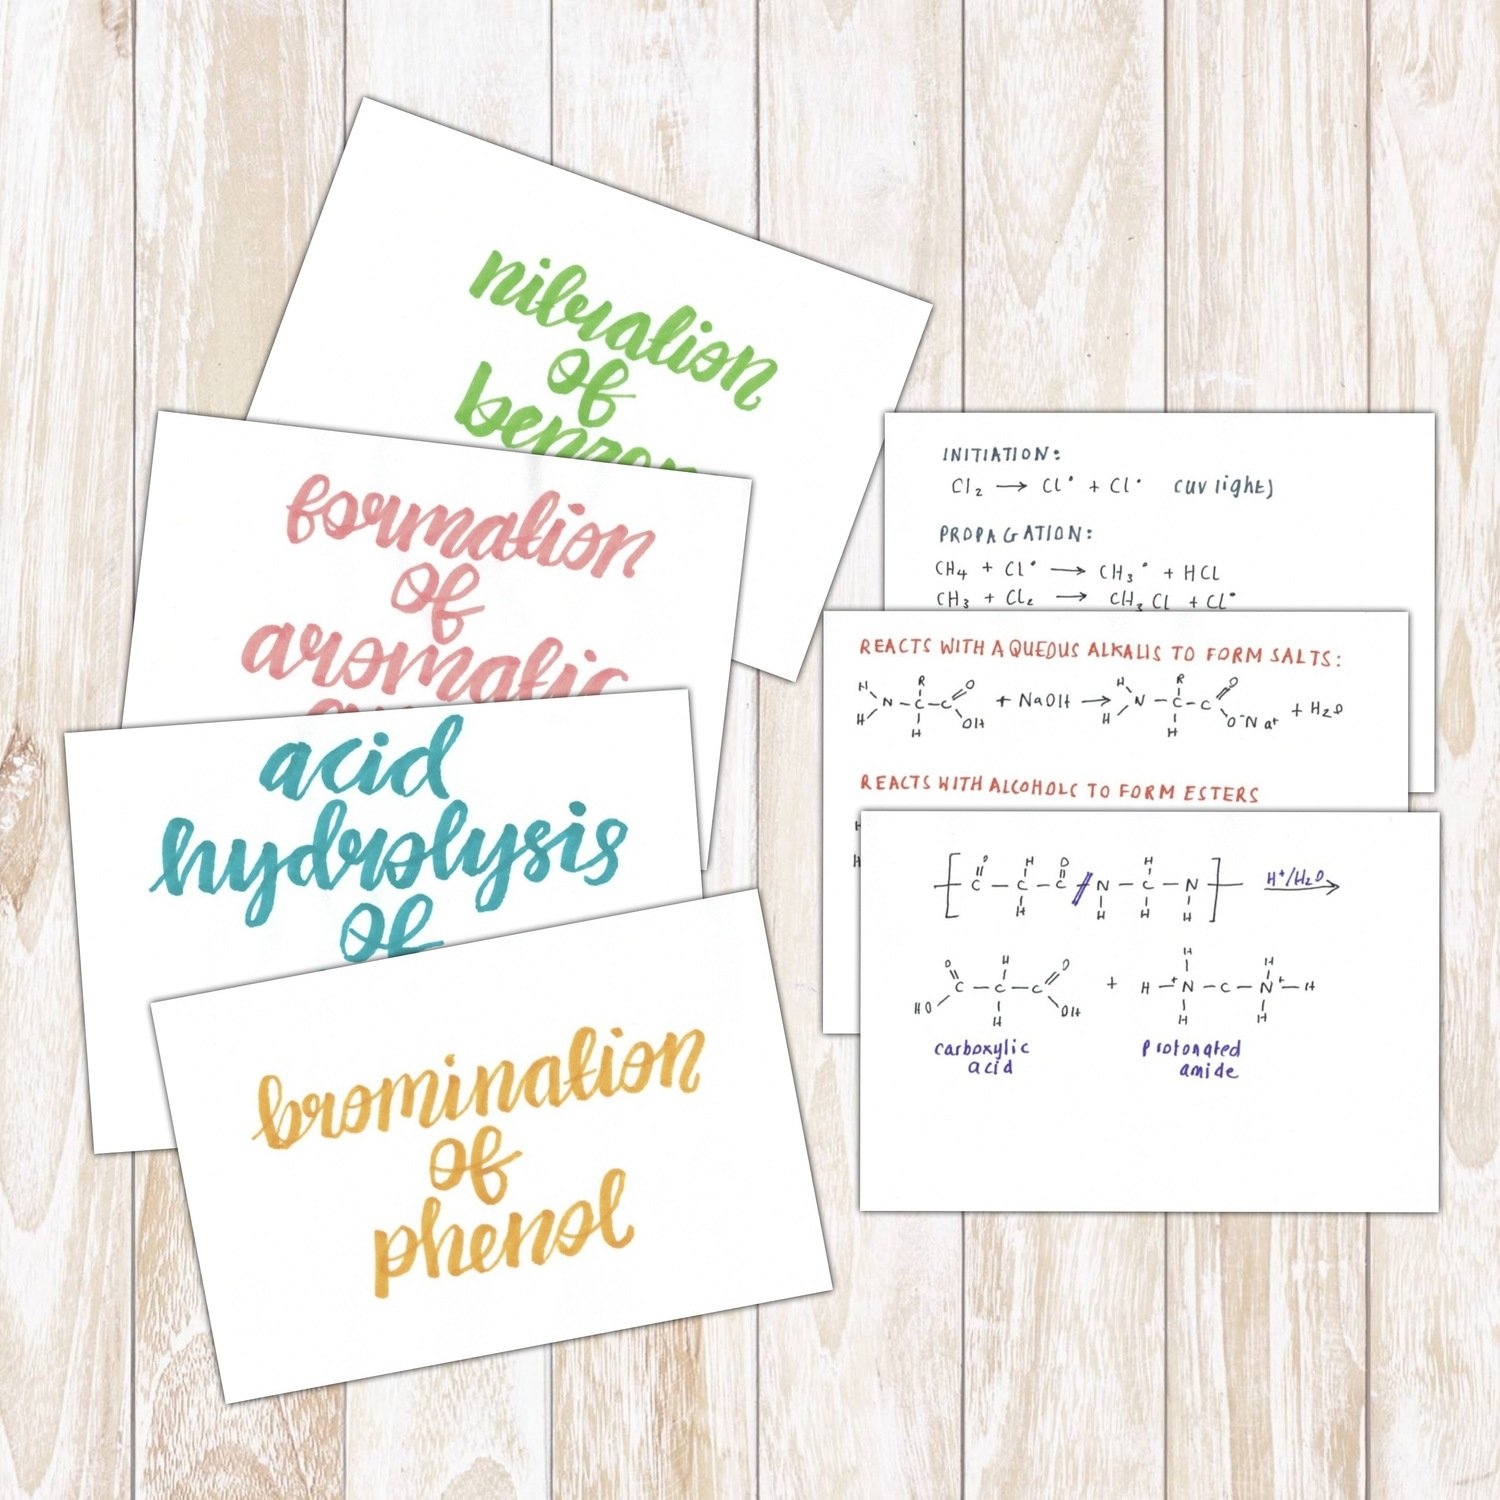 nitration
of
formation
of
aromatic
acid
hydrolysis
of
bromination
of
phenol
INITIATION:
Cl₂ → Cl• + Cl• (uv light)
PROPAGATION:
CH₄ + Cl• → CH₃• + HCl
CH₃ + Cl₂ → CH₃Cl + Cl•
REACTS WITH AQUEOUS ALKALIS TO FORM SALTS:
H R O H R O
N – C – C + NaOH → N – C – C + H₂O
H H OH H H O⁻Na⁺
REACTS WITH ALCOHOLS TO FORM ESTERS
H
H
O H O H
C – C – C N – C – N H⁺/H₂O
H H H H
O H O H H
C – C – C + H – N⁺ – C – N⁺ – H
HO H OH H H
carboxylic protonated
acid amide